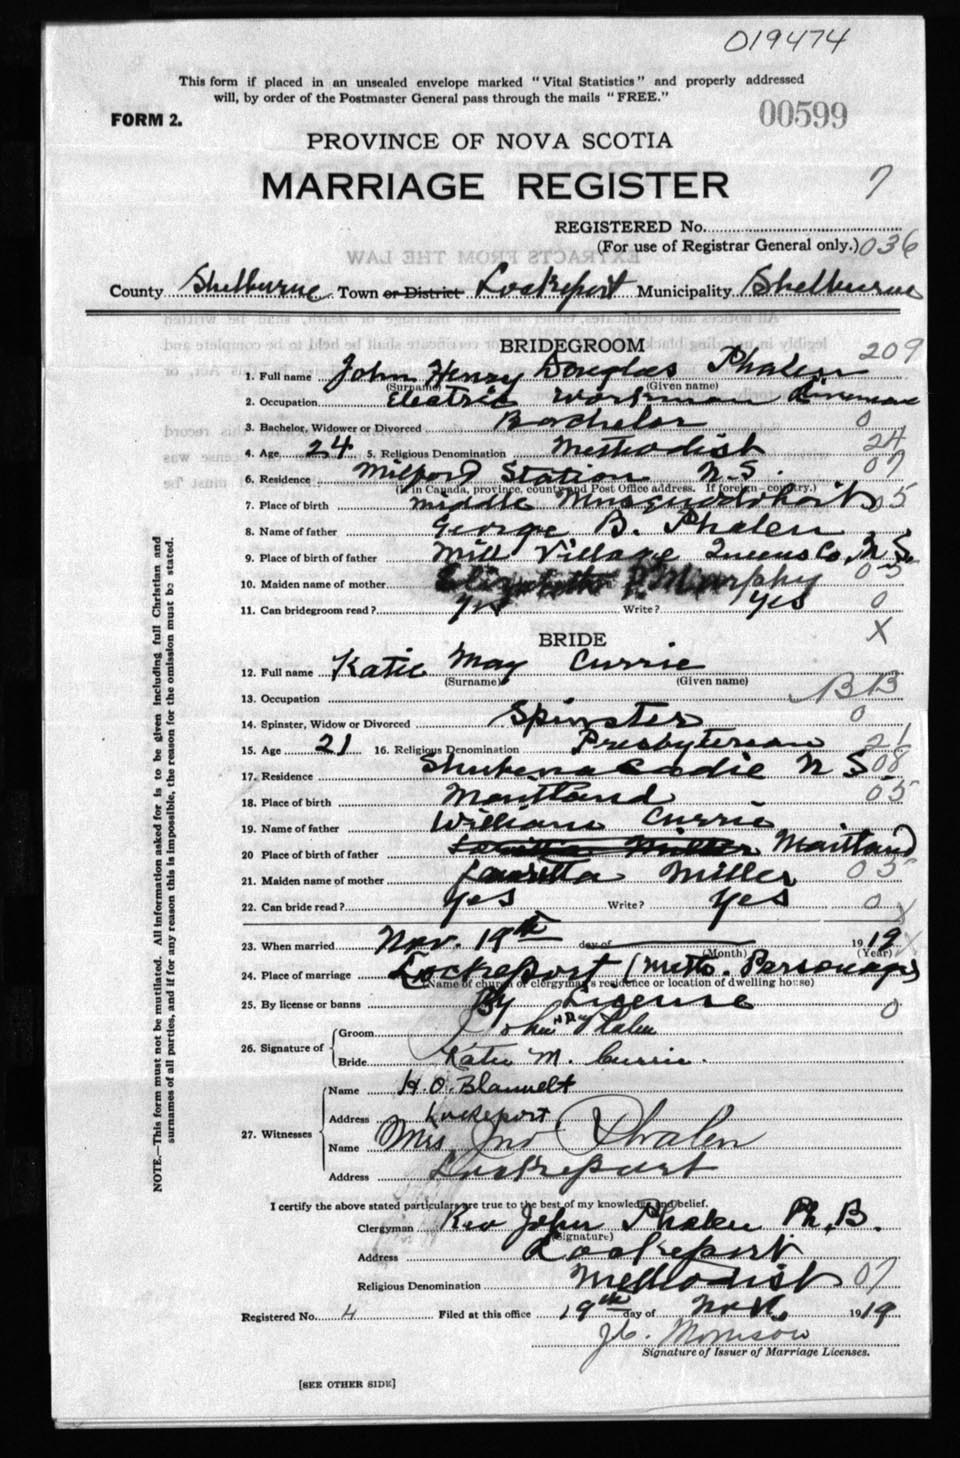 019474
This form if placed in an unsealed envelope marked "Vital Statistics" and properly addressed
will, by order of the Postmaster General pass through the mails "FREE."
FORM 2.
00599
PROVINCE OF NOVA SCOTIA
MARRIAGE REGISTER
7
REGISTERED No.
(For use of Registrar General only.) 036
County Shelburne Town or District Lockeport Municipality Shelburne
BRIDEGROOM 209
1. Full name John Henry Douglas Phalen
(Surname) (Given name)
2. Occupation Electric Workman Lineman
3. Bachelor, Widower or Divorced Bachelor 0
4. Age 24 5. Religious Denomination Methodist 24
6. Residence Milford Station N.S. 07
(If in Canada, province, county and Post Office address. If foreign—country.)
7. Place of birth Middle Musquodoboit 05
8. Name of father George B. Phalen
9. Place of birth of father Mill Village Queens Co, N.S.
10. Maiden name of mother Elizabeth P. Murphy 05
11. Can bridegroom read? Yes Write? Yes 0
X
BRIDE
12. Full name Katie May Currie
(Surname) (Given name)
13. Occupation BB
14. Spinster, Widow or Divorced Spinster 0
15. Age 21 16. Religious Denomination Presbyterian 21
17. Residence Shubenacadie N S 08
18. Place of birth Maitland 05
19. Name of father William Currie
20 Place of birth of father Maitland
21. Maiden name of mother Lauretta Miller 05
22. Can bride read? Yes Write? Yes 0
X
23. When married Nov. 19th day of 1919
(Month) (Year)
24. Place of marriage Lockeport (Meth. Personage)
(Name of church or clergyman's residence or location of dwelling house)
25. By license or banns By License 0
26. Signature of Groom John H D Phalen
Bride Katie M. Currie.
27. Witnesses
Name H. O. Blauvelt
Address Lockeport
Name Mrs Jno Phalen
Address Lockeport
I certify the above stated particulars are true to the best of my knowledge and belief.
Clergyman Rev John Phalen Ph, B.
(Signature)
Address Lockeport
Religious Denomination Methodist 07
Registered No. 4 Filed at this office 19th day of Nov. 1919
J.C. Morrison
Signature of Issuer of Marriage Licenses.
[SEE OTHER SIDE]
NOTE.—This form must not be mutilated. All information asked for is to be given including full Christian and
surnames of all parties, and if for any reason this is impossible, the reason for the omission must be stated.